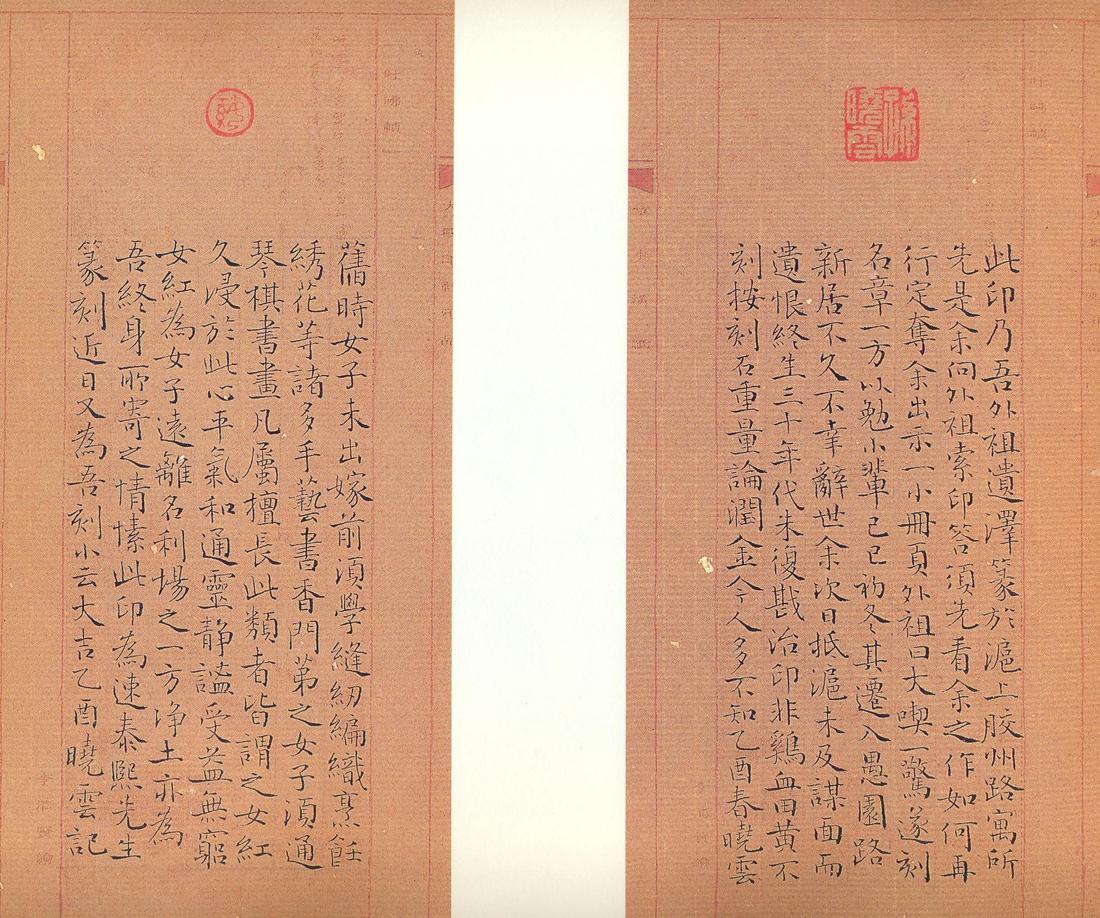 此印乃吾外祖遺澤篆於滬上膠州路寓所
先是余向外祖索印答須先看余之作如何再
行定奪余出示一小冊頁外祖曰大喫一驚遂刻
名章一方以勉小輩己巳初冬其遷入愚園路
新居不久不幸辭世余次日抵滬未及謀面而
遺恨終生三十年代朱復戡治印非鷄血田黃不
刻按刻石重量論潤金今人多不知乙酉春曉雲
舊時女子未出嫁前須學縫紉編織烹飪
綉花等諸多手藝書香門第之女子須通
琴棋書畫凡屬檀長此類者皆謂之女紅
久浸於此心平氣和通靈静謐受益無窮
女紅為女子遠離名利場之一方净土亦為
吾終身所寄之情愫此印為速泰熙先生
篆刻近日又為吾刻小云大吉乙酉曉雲記